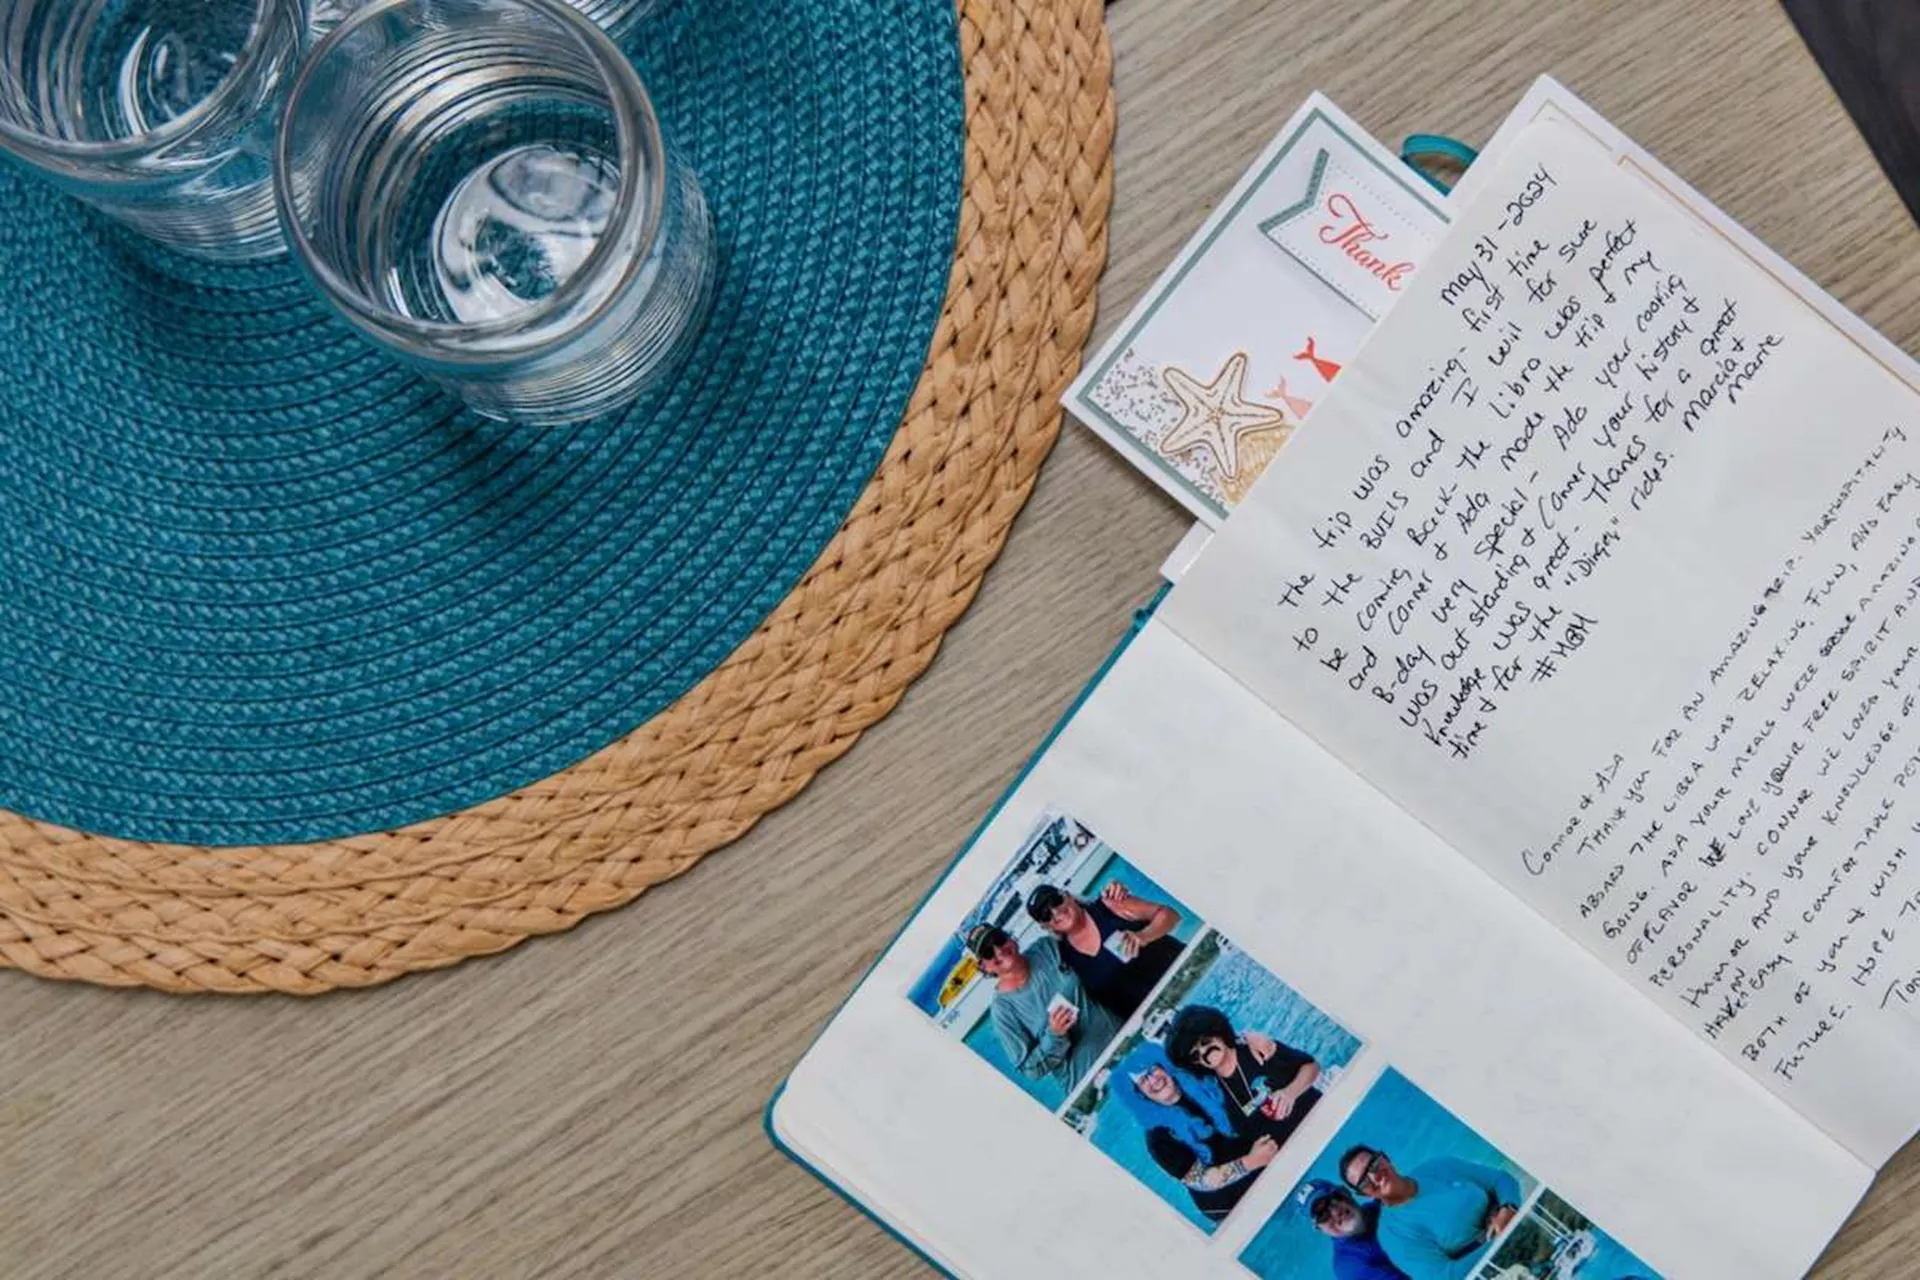 Thank
May 31-2024
The trip was amazing - first time
to the BVI's and I will for sure
be coming Back - the Libra was perfect
and Conner & Ada made the trip & my
B-day very special - Ada your cooking
was out standing & Conner your history &
knowledge was great - Thanks for a great
time & for the "Dingey" rides. Marcia &
Marie
Connor & ADA
THANK you FOR AN AMAZING TRIP. YOUR HOSPITALITY
ABOARD THE LIBRA WAS RELAXING, FUN, AND EASY
GOING. ADA YOUR MEALS WERE AMAZING
OF FLAVOR WE LOVE YOUR FREE SPIRIT AND
PERSONALITY. CONNOR WE LOVED YOUR
HUMOR AND YOUR KNOWLEDGE OF
EASY & COMFORTABLE
BOTH OF YOU & WISH
FUTURE. HOPE TO